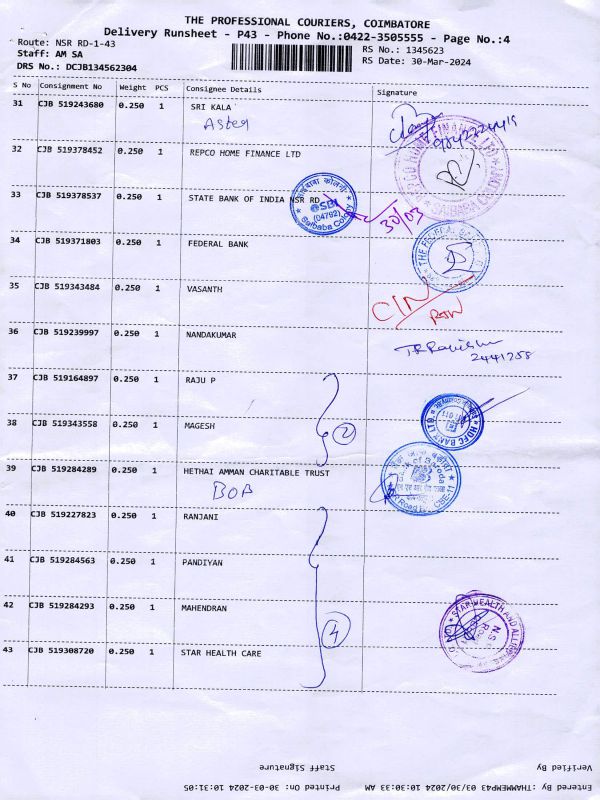 THE PROFESSIONAL COURIERS, COIMBATORE
Delivery Runsheet - P43 - Phone No.:0422-3505555 - Page No.:4
Route: NSR RD-1-43
RS No.: 1345623
Staff: AM SA
RS Date: 30-Mar-2024
DRS No.: DCJB134562304
S No Consignment No Weight PCS Consignee Details Signature
31 CJB 519243680 0.250 1 SRI KALA
Aster
32 CJB 519378452 0.250 1 REPCO HOME FINANCE LTD
33 CJB 519378537 0.250 1 STATE BANK OF INDIA NSR RD
SBI
(04792)
Saibaba Colony
30/03
34 CJB 519371803 0.250 1 FEDERAL BANK
THE FEDERAL
35 CJB 519343484 0.250 1 VASANTH
36 CJB 519239997 0.250 1 NANDAKUMAR
2441258
37 CJB 519164897 0.250 1 RAJU P
38 CJB 519343558 0.250 1 MAGESH
2
HDFC BANK LTD
39 CJB 519284289 0.250 1 HETHAI AMMAN CHARITABLE TRUST
BOB
Bank of Baroda
40 CJB 519227823 0.250 1 RANJANI
41 CJB 519284563 0.250 1 PANDIYAN
42 CJB 519284293 0.250 1 MAHENDRAN
4
STAR HEALTH AND ALLIED
43 CJB 519308720 0.250 1 STAR HEALTH CARE
Staff Signature
Verified By
Printed On: 30-03-2024 10:31:05
Entered By :THAMMEMP43 03/30/2024 10:30:33 AM